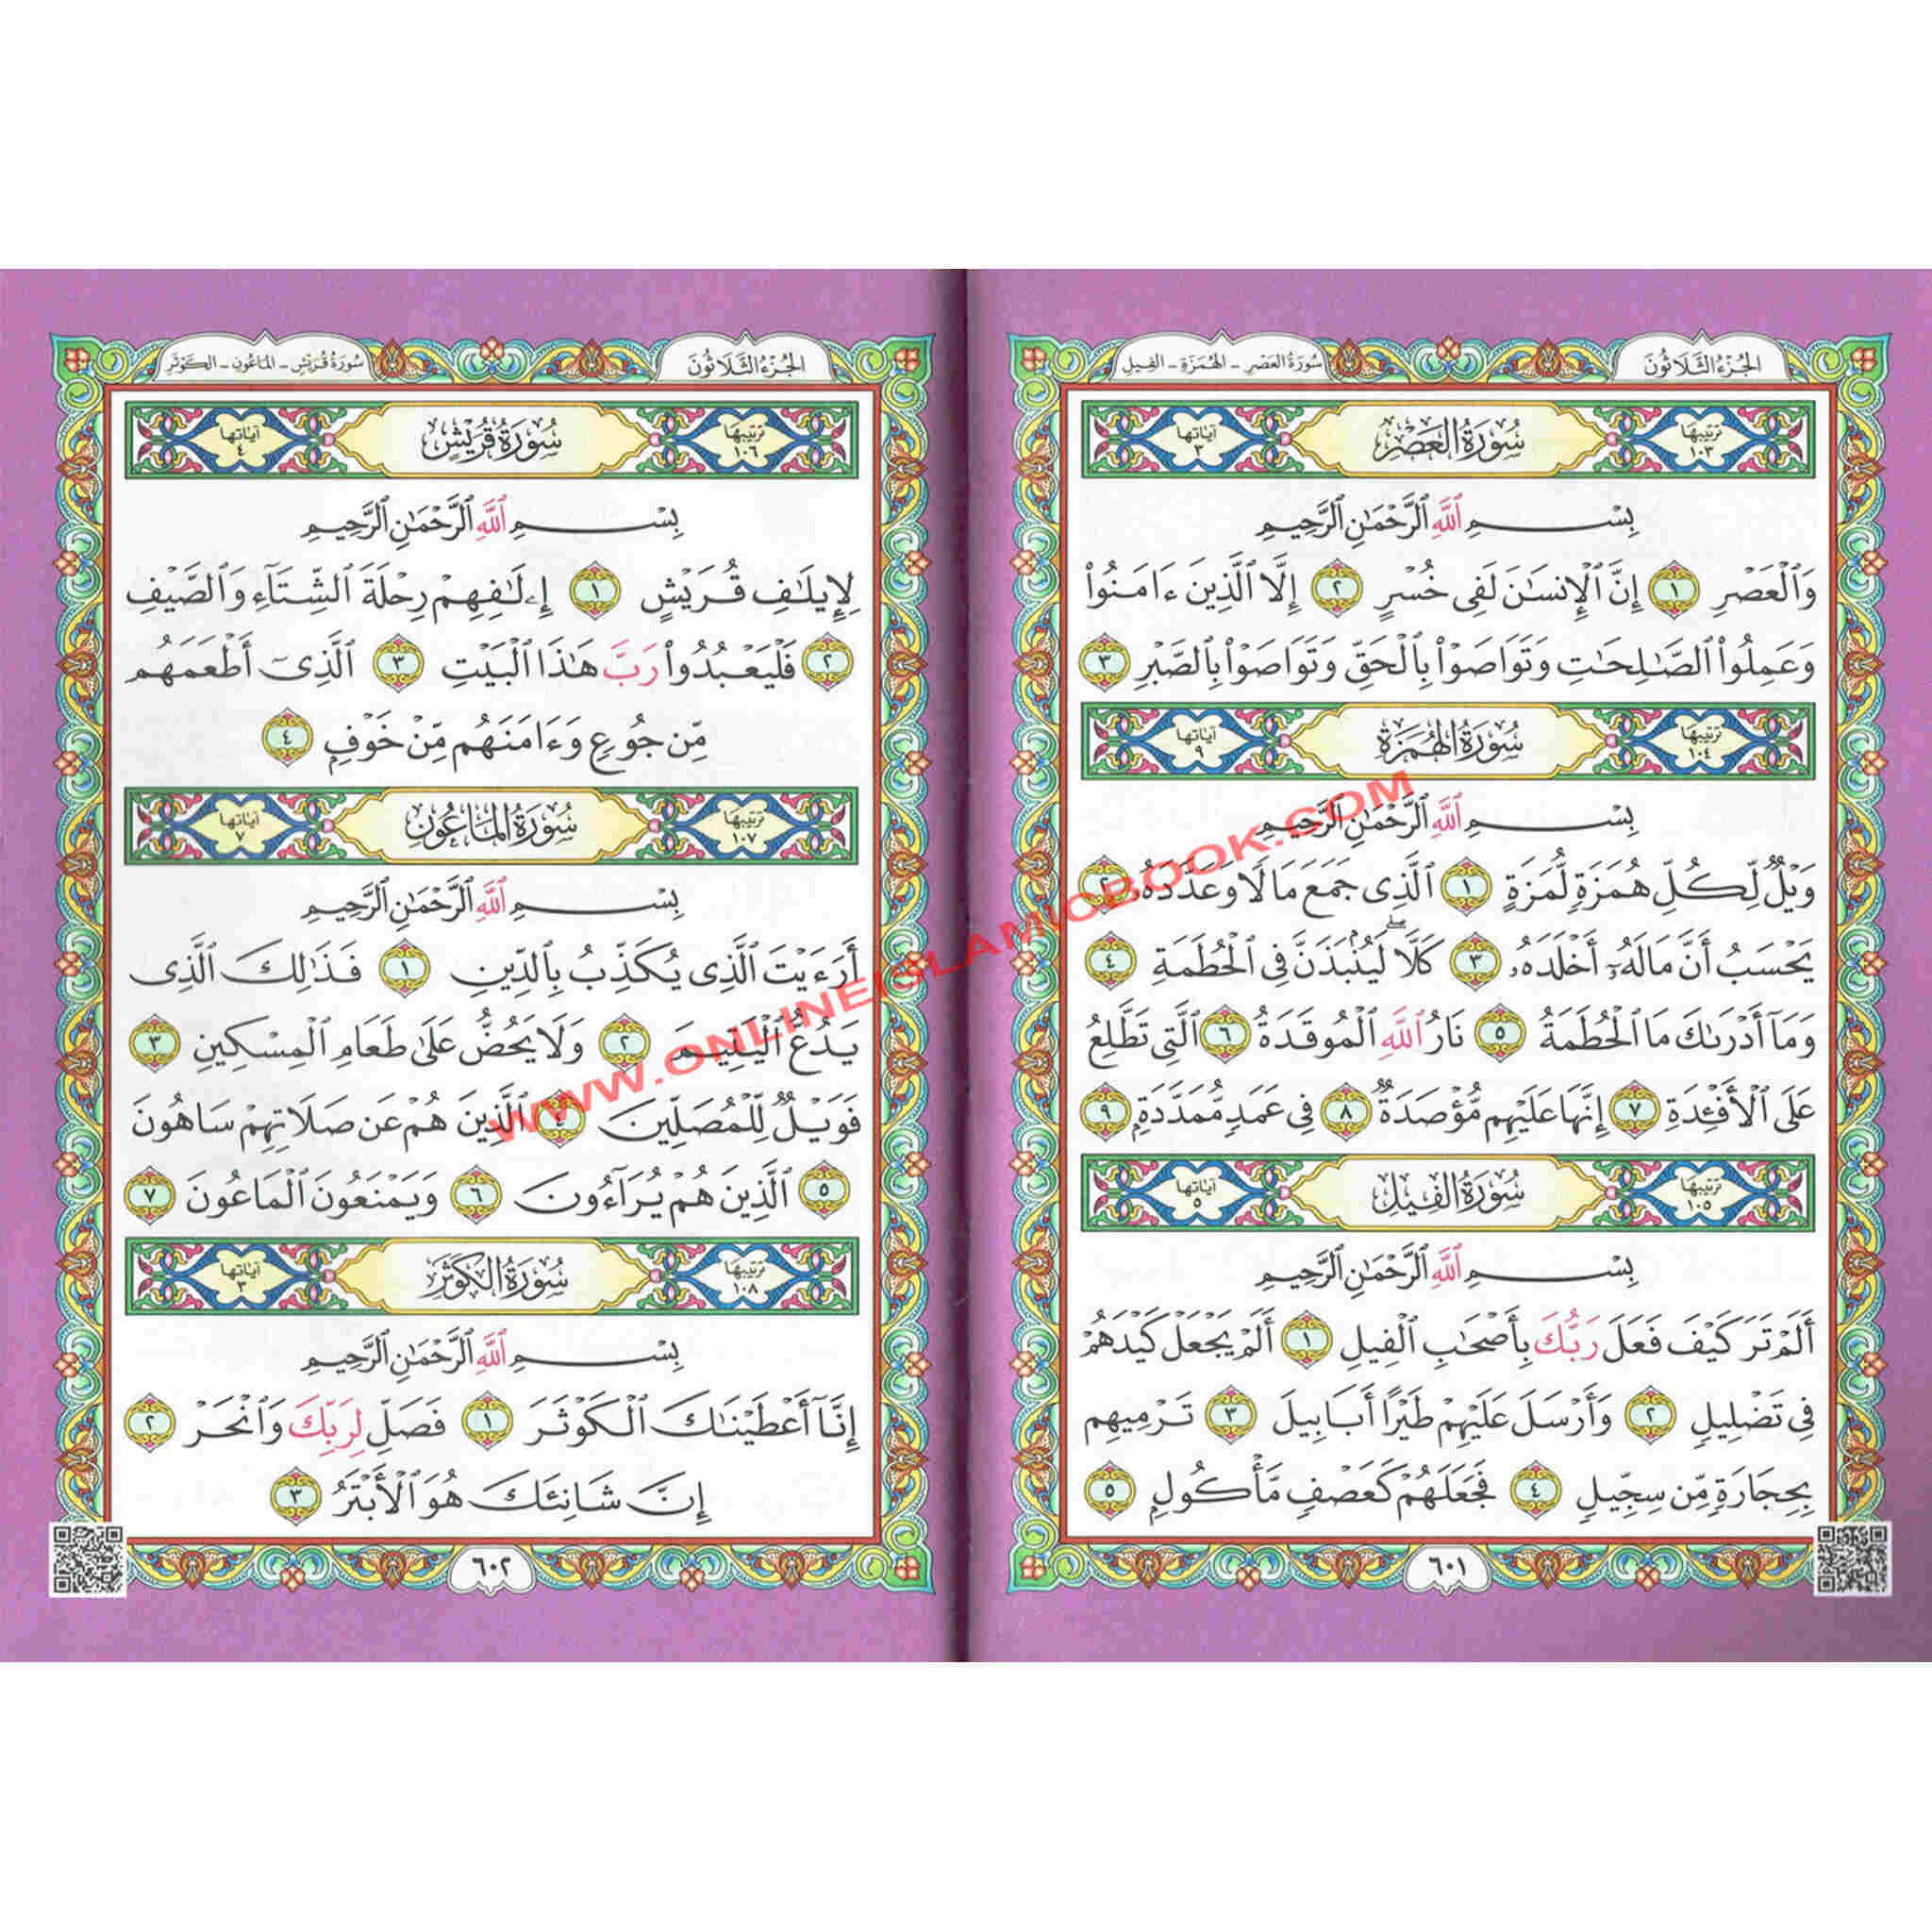 الجُزْءُ الثَّلَاثُونَ
سُورَةُ العَصْرِ - الهُمَزَةِ - الفِيلِ
تَرْتِيبُهَا ١٠٣
سُورَةُ العَصْرِ
آيَاتُهَا ٣
بِسْمِ ٱللَّهِ ٱلرَّحْمَٰنِ ٱلرَّحِيمِ
وَٱلْعَصْرِ ١ إِنَّ ٱلْإِنسَٰنَ لَفِى خُسْرٍ ٢ إِلَّا ٱلَّذِينَ ءَامَنُوا۟
وَعَمِلُوا۟ ٱلصَّٰلِحَٰتِ وَتَوَاصَوْا۟ بِٱلْحَقِّ وَتَوَاصَوْا۟ بِٱلصَّبْرِ ٣
تَرْتِيبُهَا ١٠٤
سُورَةُ الهُمَزَةِ
آيَاتُهَا ٩
بِسْمِ ٱللَّهِ ٱلرَّحْمَٰنِ ٱلرَّحِيمِ
وَيْلٌ لِّكُلِّ هُمَزَةٍ لُّمَزَةٍ ١ ٱلَّذِى جَمَعَ مَالًا وَعَدَّدَهُۥ ٢
يَحْسَبُ أَنَّ مَالَهُۥٓ أَخْلَدَهُۥ ٣ كَلَّا ۖ لَيُنۢبَذَنَّ فِى ٱلْحُطَمَةِ ٤
وَمَآ أَدْرَىٰكَ مَا ٱلْحُطَمَةُ ٥ نَارُ ٱللَّهِ ٱلْمُوقَدَةُ ٦ ٱلَّتِى تَطَّلِعُ
عَلَى ٱلْأَفْـِٔدَةِ ٧ إِنَّهَا عَلَيْهِم مُّؤْصَدَةٌ ٨ فِى عَمَدٍ مُّمَدَّدَةٍۭ ٩
تَرْتِيبُهَا ١٠٥
سُورَةُ الفِيلِ
آيَاتُهَا ٥
بِسْمِ ٱللَّهِ ٱلرَّحْمَٰنِ ٱلرَّحِيمِ
أَلَمْ تَرَ كَيْفَ فَعَلَ رَبُّكَ بِأَصْحَٰبِ ٱلْفِيلِ ١ أَلَمْ يَجْعَلْ كَيْدَهُمْ
فِى تَضْلِيلٍ ٢ وَأَرْسَلَ عَلَيْهِمْ طَيْرًا أَبَابِيلَ ٣ تَرْمِيهِم
بِحِجَارَةٍ مِّن سِجِّيلٍ ٤ فَجَعَلَهُمْ كَعَصْفٍ مَّأْكُولٍۭ ٥
٦٠١
الجُزْءُ الثَّلَاثُونَ
سُورَةُ قُرَيْشٍ - المَاعُونِ - الكَوْثَرِ
تَرْتِيبُهَا ١٠٦
سُورَةُ قُرَيْشٍ
آيَاتُهَا ٤
بِسْمِ ٱللَّهِ ٱلرَّحْمَٰنِ ٱلرَّحِيمِ
لِإِيلَٰفِ قُرَيْشٍ ١ إِۦلَٰفِهِمْ رِحْلَةَ ٱلشِّتَآءِ وَٱلصَّيْفِ
٢ فَلْيَعْبُدُوا۟ رَبَّ هَٰذَا ٱلْبَيْتِ ٣ ٱلَّذِىٓ أَطْعَمَهُم
مِّن جُوعٍ وَءَامَنَهُم مِّنْ خَوْفٍۭ ٤
تَرْتِيبُهَا ١٠٧
سُورَةُ المَاعُونِ
آيَاتُهَا ٧
بِسْمِ ٱللَّهِ ٱلرَّحْمَٰنِ ٱلرَّحِيمِ
أَرَءَيْتَ ٱلَّذِى يُكَذِّبُ بِٱلدِّينِ ١ فَذَٰلِكَ ٱلَّذِى
يَدُعُّ ٱلْيَتِيمَ ٢ وَلَا يَحُضُّ عَلَىٰ طَعَامِ ٱلْمِسْكِينِ ٣
فَوَيْلٌ لِّلْمُصَلِّينَ ٤ ٱلَّذِينَ هُمْ عَن صَلَاتِهِمْ سَاهُونَ
٥ ٱلَّذِينَ هُمْ يُرَآءُونَ ٦ وَيَمْنَعُونَ ٱلْمَاعُونَ ٧
تَرْتِيبُهَا ١٠٨
سُورَةُ الكَوْثَرِ
آيَاتُهَا ٣
بِسْمِ ٱللَّهِ ٱلرَّحْمَٰنِ ٱلرَّحِيمِ
إِنَّآ أَعْطَيْنَٰكَ ٱلْكَوْثَرَ ١ فَصَلِّ لِرَبِّكَ وَٱنْحَرْ ٢
إِنَّ شَانِئَكَ هُوَ ٱلْأَبْتَرُ ٣
٦٠٢
WWW.ONLINEISLAMICBOOK.COM